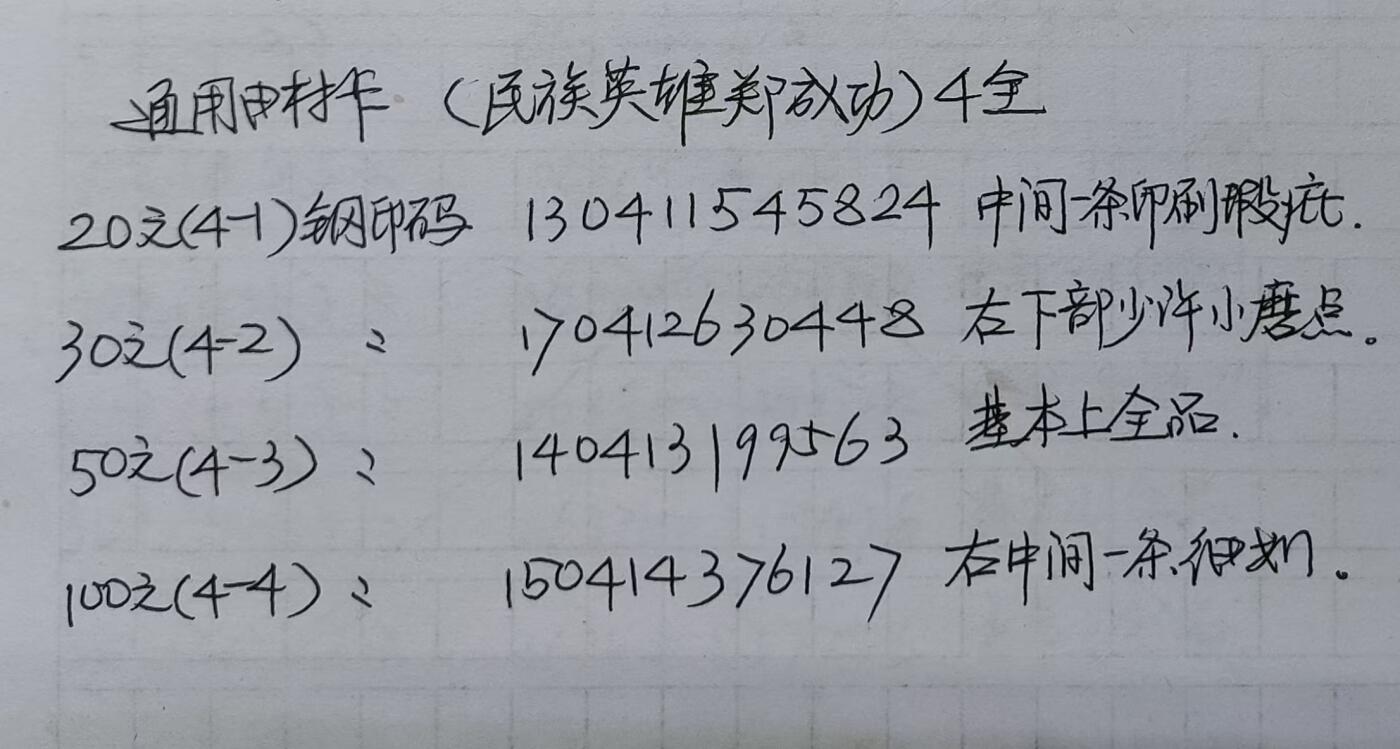 通用电材卡（民族英雄郑成功）4全
20元(4-1)钢印码 130411545824 中间一条印刷瑕疵.
30元(4-2) : 170412630448 右下部少许小磨点。
50元(4-3) : 140413199563 基本上全品.
100元(4-4) : 150414376127 右中间一条细划。